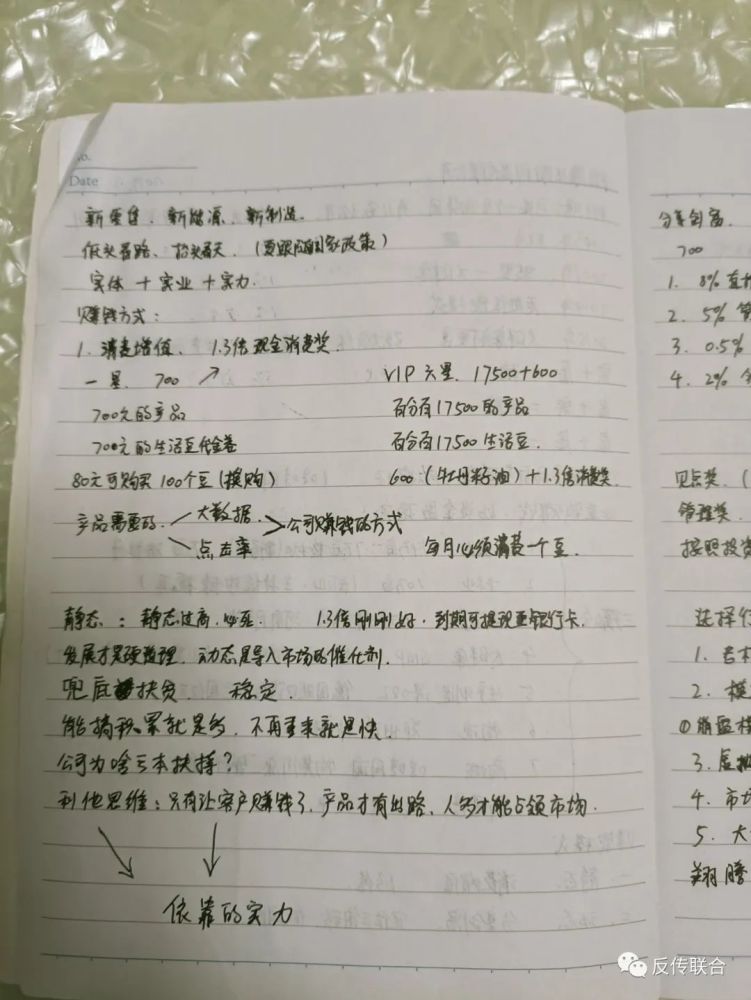 No.
Date
新零售、新能源、新制造.
低头看路、抬头看天、(要跟随国家政策)
实体 + 实业 + 实力.
赚钱方式:
1. 消费增值、1.3倍现金消费奖.
一星、700 ↗
VIP 六星、17500+600
700元的产品
百分百17500的产品
700元的生活豆代金卷
百分百17500生活豆.
80元可购买100个豆(换购)
600 (牡丹籽油)+1.3倍消费奖.
产品需要的.
大数据.
点击率
公司赚钱的方式
每月必须消费一个豆.
静态: 静态过高.必死. 1.3倍刚刚好.到期可提现至银行卡.
发展才是硬道理. 动态是导入市场的催化剂.
兜底扶贫. 稳定.
能搞积累就是多, 不再重来就是快.
公司为啥亏本扶持?
利他思维: 只有让客户赚钱了, 产品才有出路、人多才能占领市场.
依靠的实力
分享创富.
700
1. 8% 直
2. 5% 管
3. 0.5%
4. 2%
见点奖. (
管理奖.
按照投资
选择行
1.
2. 模
①崩盘模
3. 虚拟
4. 市场
5. 大
翔腾
反传联合